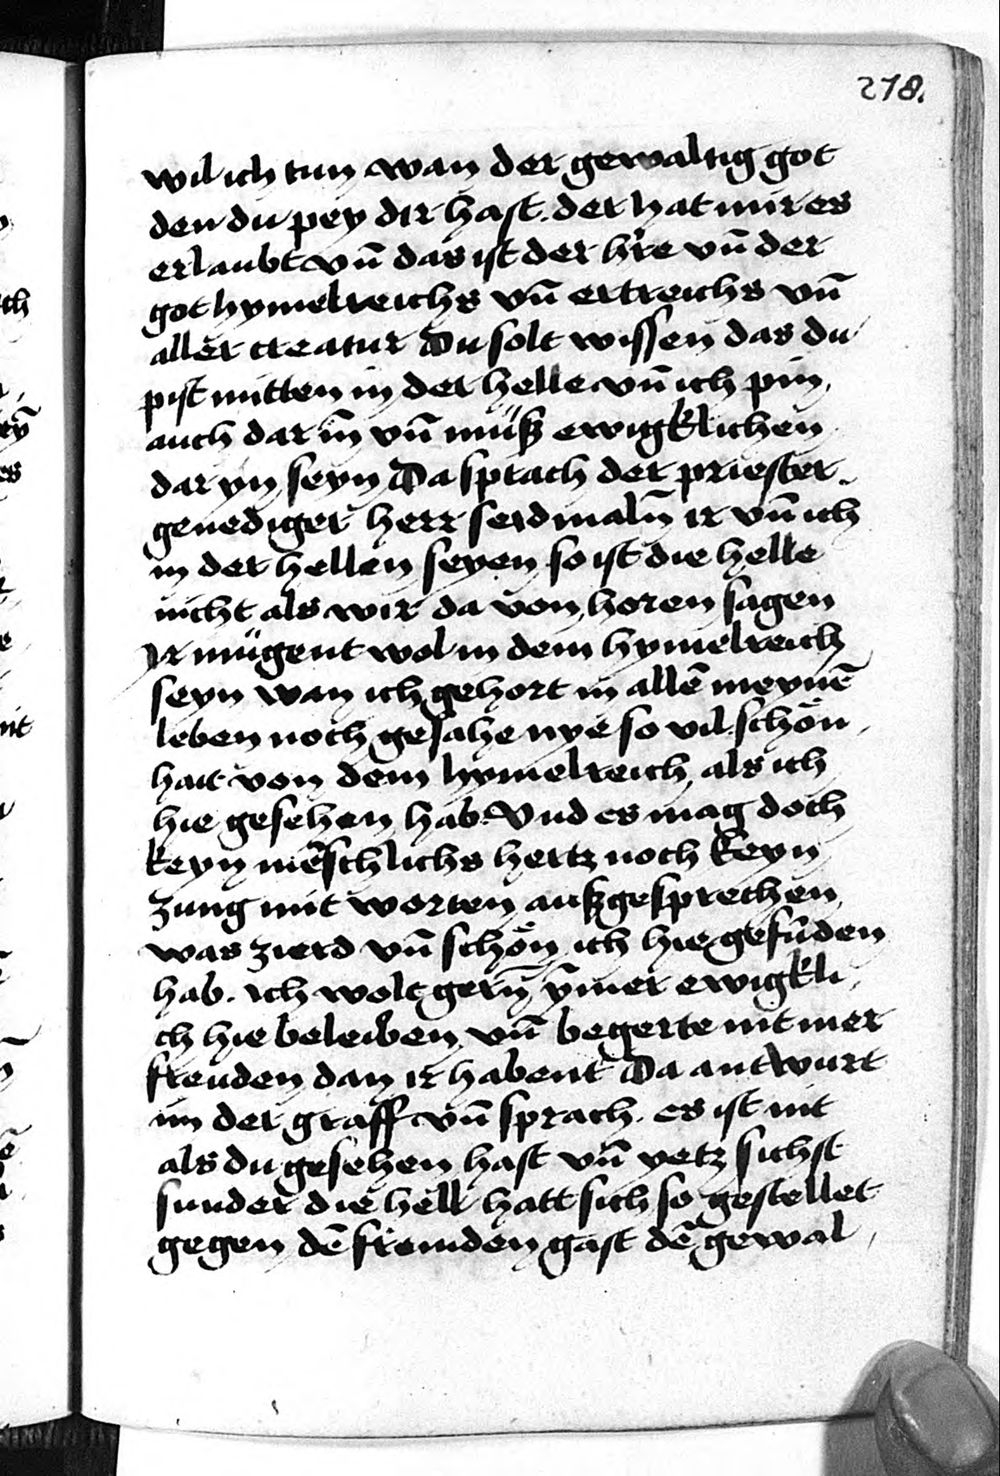 278.
wil ich tun wan der gewaltig got
den du pey dir hast. der hat mir es
erlaubt vn̄ das ist der hr̄e vn̄ der
got hymelreichs vn̄ ertreichs vn̄
aller creatur Du solt wissen das du
pist mitten in der helle vn̄ ich pin
auch dar in̄ vn̄ müß ewigklichen
dar yn seyn Da sprach der priester.
genediger herr seidmaln̄ ir vn̄ ich
in der hellen seyen so ist die helle
nicht als wir da von horen sagen
Ir mügent wol in dem hymelreich
seyn wan ich gehort in allē meynē
leben noch gesahe nye so vil schön
hait von dem hymelreich als ich
hie gesehen hab. Vnd es mag doch
keyn mēschlichs hertz noch keyn
zung mit worten außgesprechen
was zierd vn̄ schön ich hie gefūden
hab. ich wolt gern̄ ȳmer ewigkli
ch hie beleiben vn̄ begerte nit mer
freuden dan ir habent Da antwurt
im der graff vn̄ sprach. es ist nit
als du gesehen hast vn̄ yetz sichst
sunder die hell hatt sich so gestellet
gegen dē fremden gast dē gewal